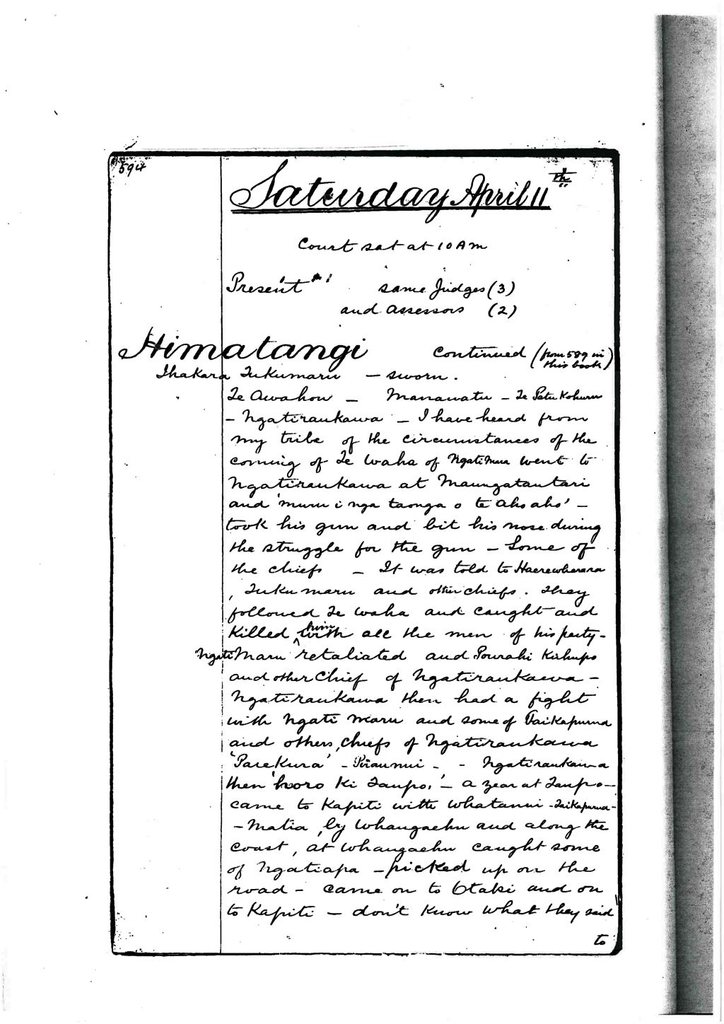 594
Saturday April 11th
Court sat at 10 AM
Present same Judges (3)
and assessors (2)
Himatangi Continued (from 589 in this book)
Ihakara Tukumaru – sworn.
Te Awahou – Manawatu – Te Patu Kohuru
– Ngatiraukawa – I have heard from
my tribe of the circumstances of the
coming of Te Waha of Ngatimaru went to
Ngatiraukawa at Maungatautari
and 'muru i nga taonga o te Ahoaho' –
took his gun and bit his nose during
the struggle for the gun – Some of
the chiefs – It was told to
, Tukumaru and other chiefs. They
followed Te Waha and caught and
Killed him with all the men of his party –
Ngati Maru retaliated and
and other Chief of Ngatiraukawa –
Ngatiraukawa then had a fight
with Ngati Maru and some of
and others, chiefs of Ngatiraukawa
'Parekura' – – Ngatiraukawa
then 'horo ki Taupo.' – a year at Taupo –
came to Kapiti with Whatanui –
– Matia, by Whangaehu and along the
coast, at Whangaehu caught some
of Ngatiapa – picked up on the
road – came on to Otaki and on
to Kapiti – don't know what they said
to